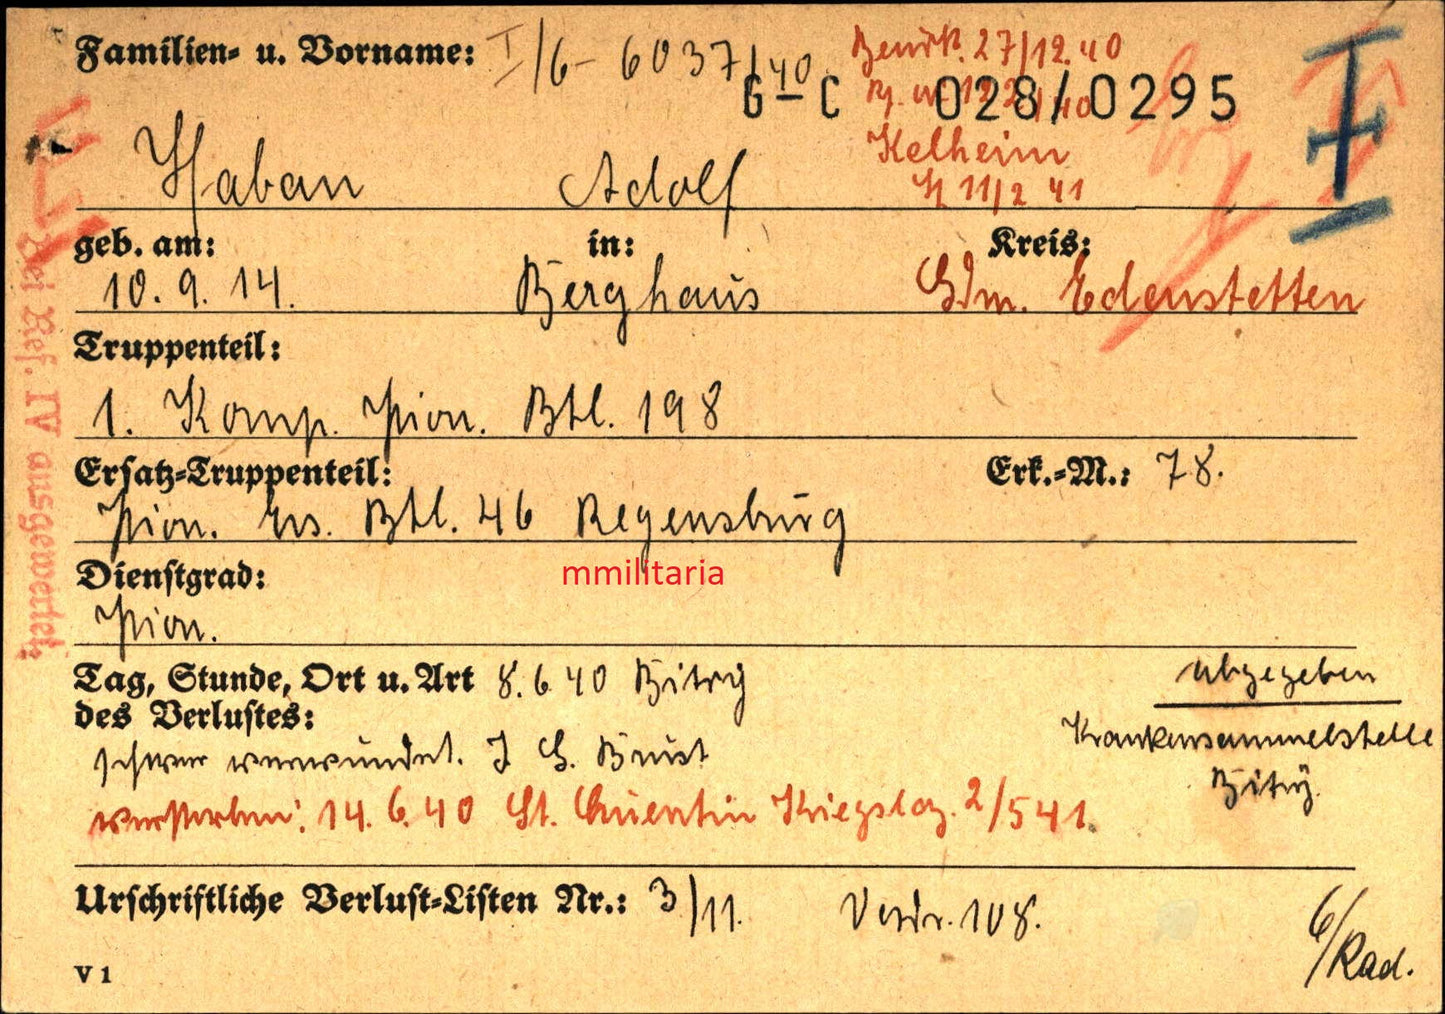 Familien- u. Vorname: I/6- 6037/40 Beurk. 27/12.40
G-C 028/0295
Kelheim
Haban Adolf 11/2 41
geb. am: in: Kreis:
10.9.14. Berghaus Gdm. Edenstetten
Truppenteil:
1. Komp. Pion. Btl. 198
Ersatz-Truppenteil: Erk.-M.: 78.
Pion. Ers. Btl. 46 Regensburg
Dienstgrad:
mmilitaria
Pion.
Tag, Stunde, Ort u. Art 8.6.40 Bitry
des Verlustes:
abgegeben
Krankensammelstelle
Bitry.
schwer verwundet. I. G. Brust
verstorben: 14.6.40 St. Quentin Kriegslaz. 2/541.
Urschriftliche Verlust-Listen Nr.: 3/11. 108.
6/Rad.
V 1
Bei Ref. IV ausgewertet